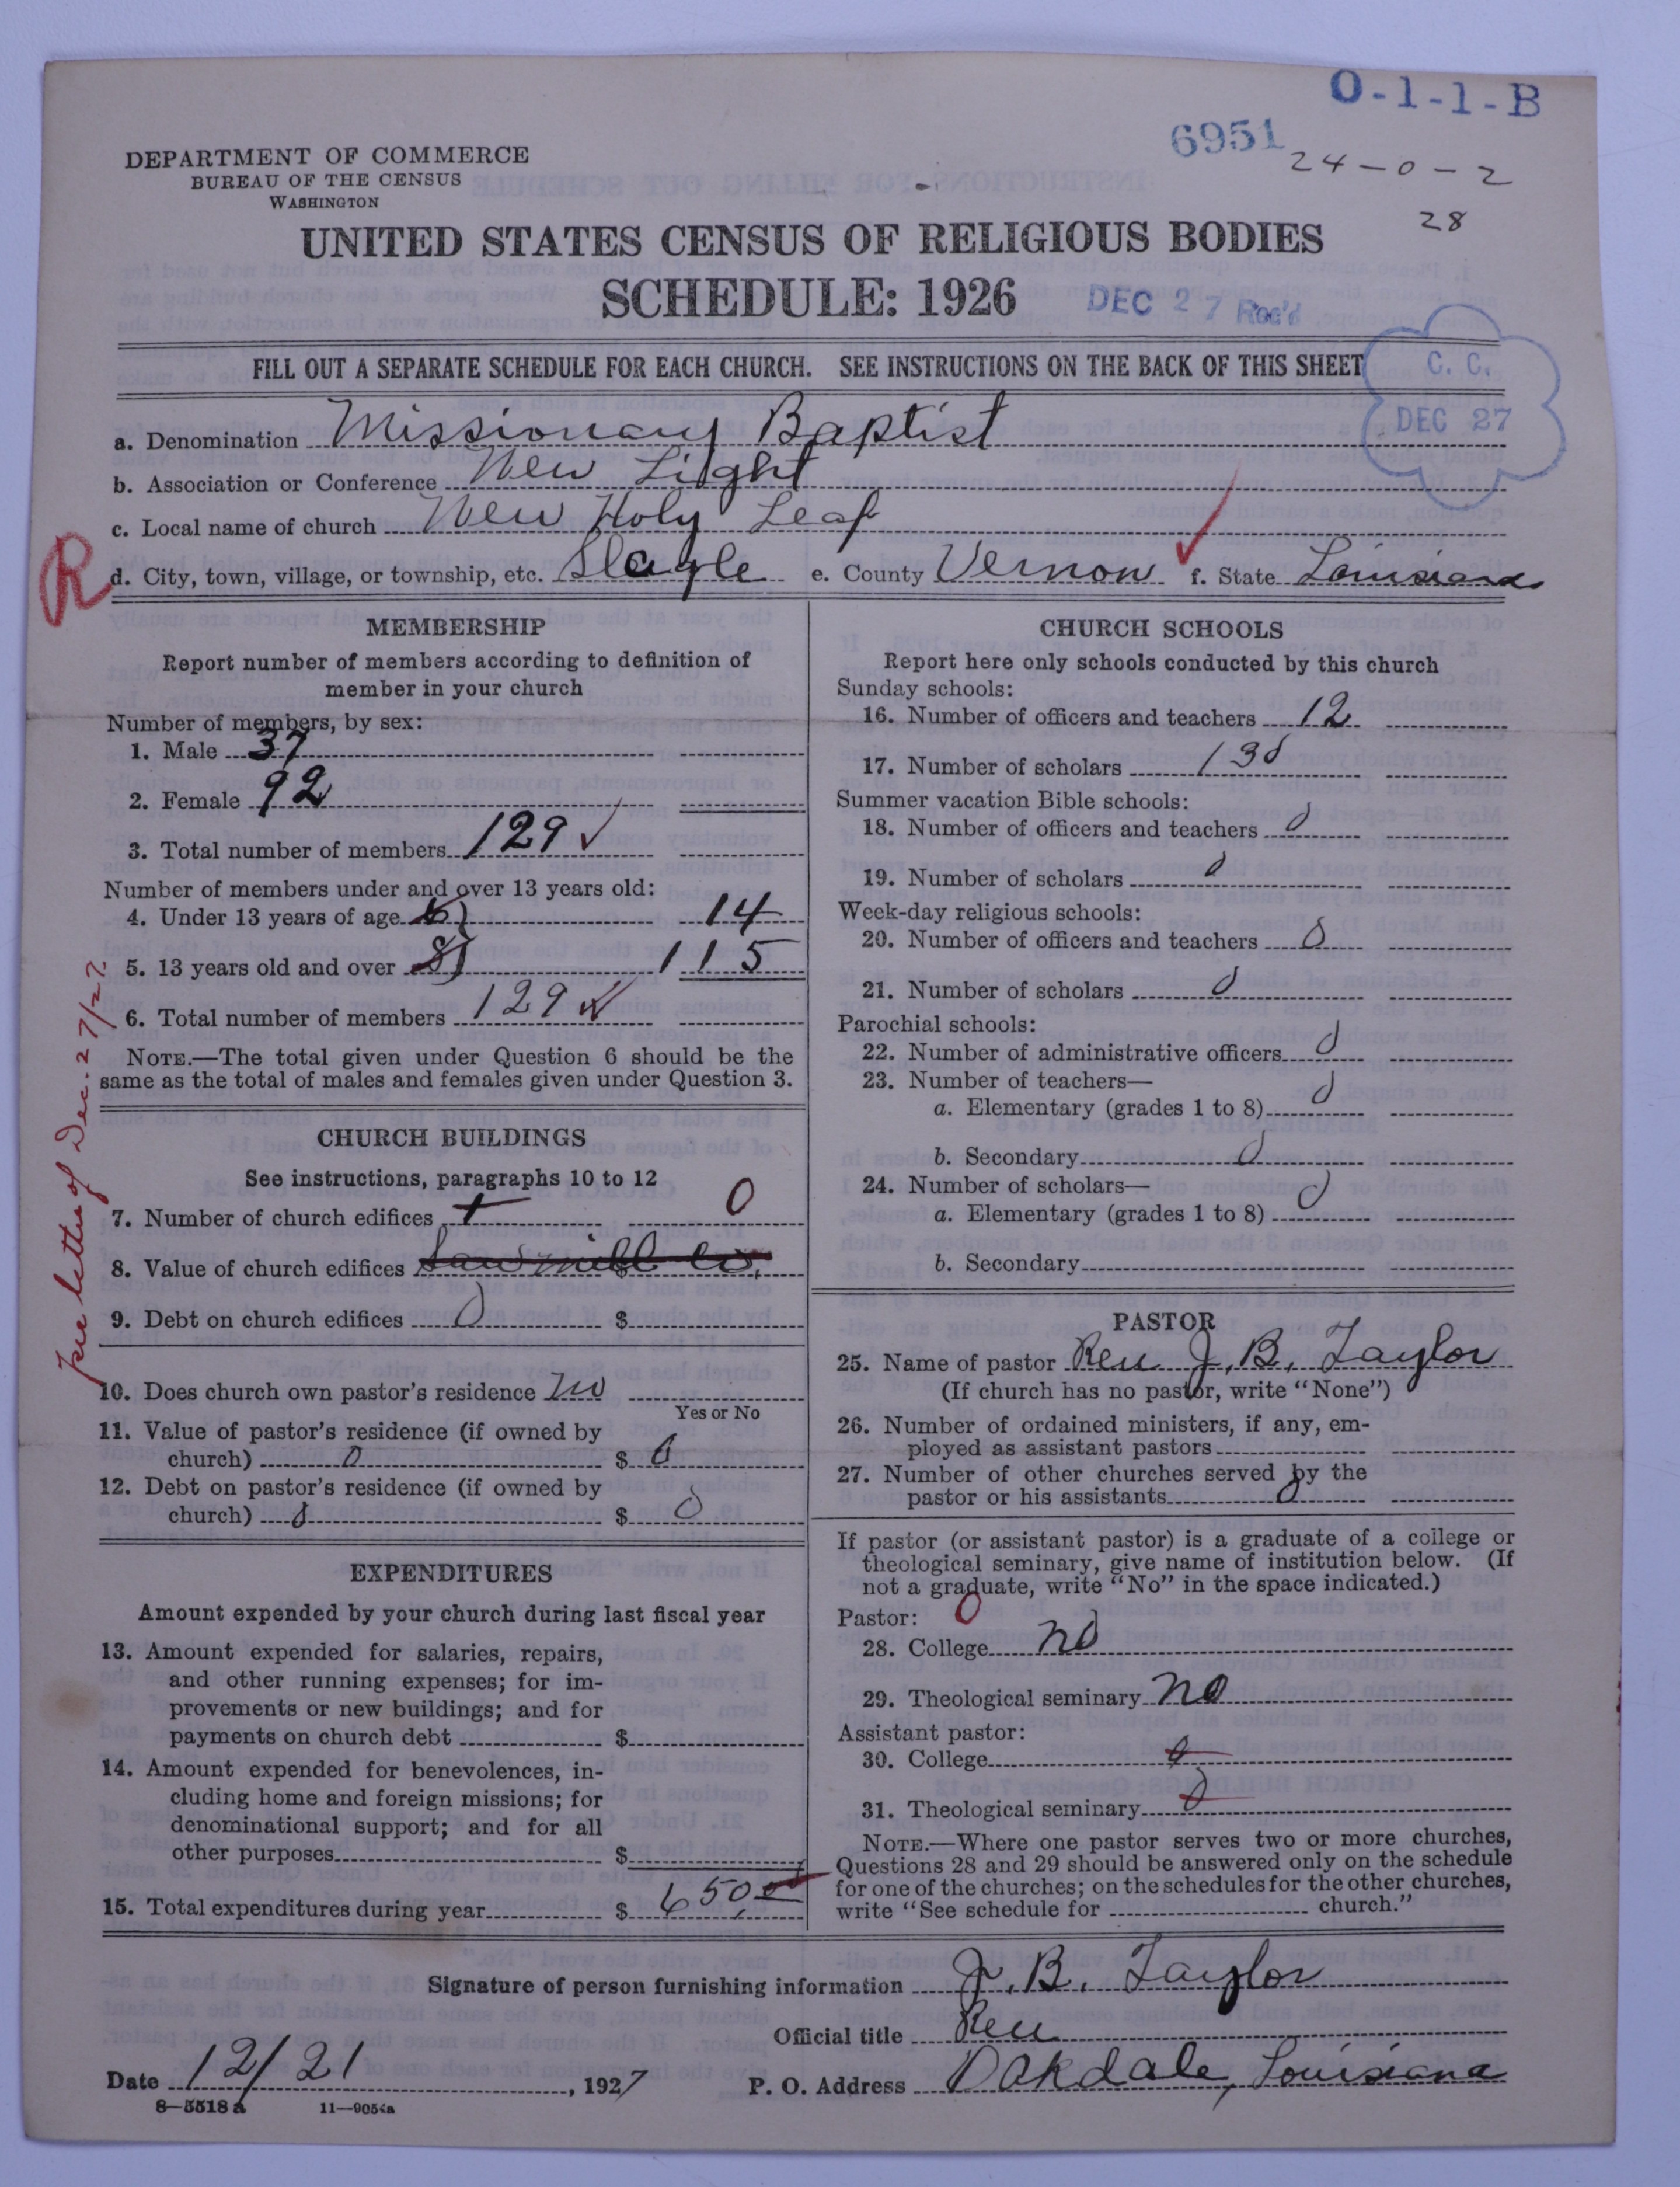 O-1-1-B
6951
24-0-2
28
DEPARTMENT OF COMMERCE
BUREAU OF THE CENSUS
WASHINGTON
UNITED STATES CENSUS OF RELIGIOUS BODIES
SCHEDULE: 1926
DEC 27 Rec'd
FILL OUT A SEPARATE SCHEDULE FOR EACH CHURCH. SEE INSTRUCTIONS ON THE BACK OF THIS SHEET
C. C.
DEC 27
a. Denomination Missionary Baptist
b. Association or Conference New Light
c. Local name of church New Holy Leaf
R
d. City, town, village, or township, etc. Slagle e. County Vernon f. State Louisiana
MEMBERSHIP
Report number of members according to definition of
member in your church
Number of members, by sex:
1. Male 37
2. Female 92
3. Total number of members 129 ✓
Number of members under and over 13 years old:
4. Under 13 years of age 14
5. 13 years old and over 115
6. Total number of members 129 ✓
NOTE.—The total given under Question 6 should be the
same as the total of males and females given under Question 3.
CHURCH BUILDINGS
See instructions, paragraphs 10 to 12
7. Number of church edifices 0
8. Value of church edifices Sawmill Co. $
9. Debt on church edifices 0 $
10. Does church own pastor's residence no
Yes or No
11. Value of pastor's residence (if owned by
church) 0 $ 0
12. Debt on pastor's residence (if owned by
church) 0 $ 0
EXPENDITURES
Amount expended by your church during last fiscal year
13. Amount expended for salaries, repairs,
and other running expenses; for im-
provements or new buildings; and for
payments on church debt $
14. Amount expended for benevolences, in-
cluding home and foreign missions; for
denominational support; and for all
other purposes $
15. Total expenditures during year $ 650.00
per letter of Dec. 27/27
CHURCH SCHOOLS
Report here only schools conducted by this church
Sunday schools:
16. Number of officers and teachers 12
17. Number of scholars 130
Summer vacation Bible schools:
18. Number of officers and teachers 0
19. Number of scholars 0
Week-day religious schools:
20. Number of officers and teachers 0
21. Number of scholars 0
Parochial schools:
22. Number of administrative officers 0
23. Number of teachers—
a. Elementary (grades 1 to 8) 0
b. Secondary 0
24. Number of scholars—
a. Elementary (grades 1 to 8) 0
b. Secondary
PASTOR
25. Name of pastor Rev J. B. Taylor
(If church has no pastor, write "None")
26. Number of ordained ministers, if any, em-
ployed as assistant pastors
27. Number of other churches served by the
pastor or his assistants 0
If pastor (or assistant pastor) is a graduate of a college or
theological seminary, give name of institution below. (If
not a graduate, write "No" in the space indicated.)
Pastor: 0
28. College no
29. Theological seminary no
Assistant pastor:
30. College 0
31. Theological seminary 0
NOTE.—Where one pastor serves two or more churches,
Questions 28 and 29 should be answered only on the schedule
for one of the churches; on the schedules for the other churches,
write "See schedule for church."
Signature of person furnishing information J. B. Taylor
Official title Rev
Date 12/21, 1927 P. O. Address Oakdale, Louisiana
8—5518a 11—9054a